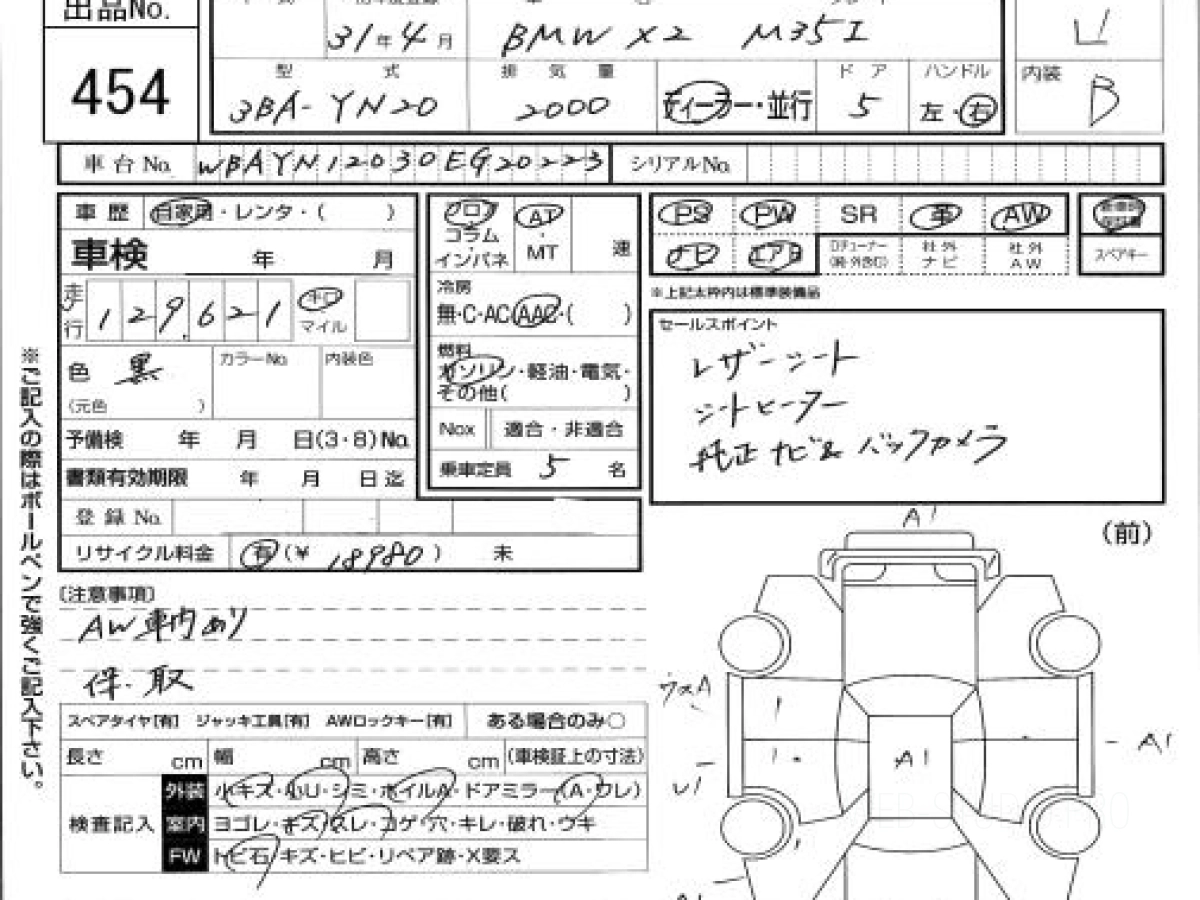 出品No.
454
31年4月 BMW X2 M35I
型式 排気量 ドア ハンドル 内装
3BA-YN20 2000 ディーラー・並行 5 左・右 B
車台No. WBAYN12030EG20223 シリアルNo.
車歴 自家用・レンタ・( )
車検 年 月
走行 129,621 キロ マイル
色 黒 カラーNo. 内装色
(元色 )
予備検 年 月 日(3・8)No.
書類有効期限 年 月 日迄
登録No.
リサイクル料金 有(¥ 18980) 未
フロア コラム インパネ AT・MT 速
冷房
無・C・AC・AAC・( )
燃料
ガソリン・軽油・電気・
その他( )
Nox 適合・非適合
乗車定員 5 名
PS PW SR 革 AW
ナビ エアB 社外ナビ 社外AW スペアキー
※上記太枠内は標準装備品
セールスポイント
レザーシート
シートヒーター
純正ナビ&バックカメラ
※ご記入の際はボールペンで強くご記入下さい。
〔注意事項〕
AW車内あり
保・取
スペアタイヤ[有] ジャッキ工具[有] AWロックキー[有] ある場合のみ○
長さ cm 幅 cm 高さ cm (車検証上の寸法)
検査記入
外装 小キズ・小U・シミ・ホイルA・ドアミラー(A・ワレ)
室内 ヨゴレ・キズ・スレ・コゲ・穴・キレ・破れ・ウキ
FW トビ石・キズ・ヒビ・リペア跡・X要ス
(前)
A1
A1
A1